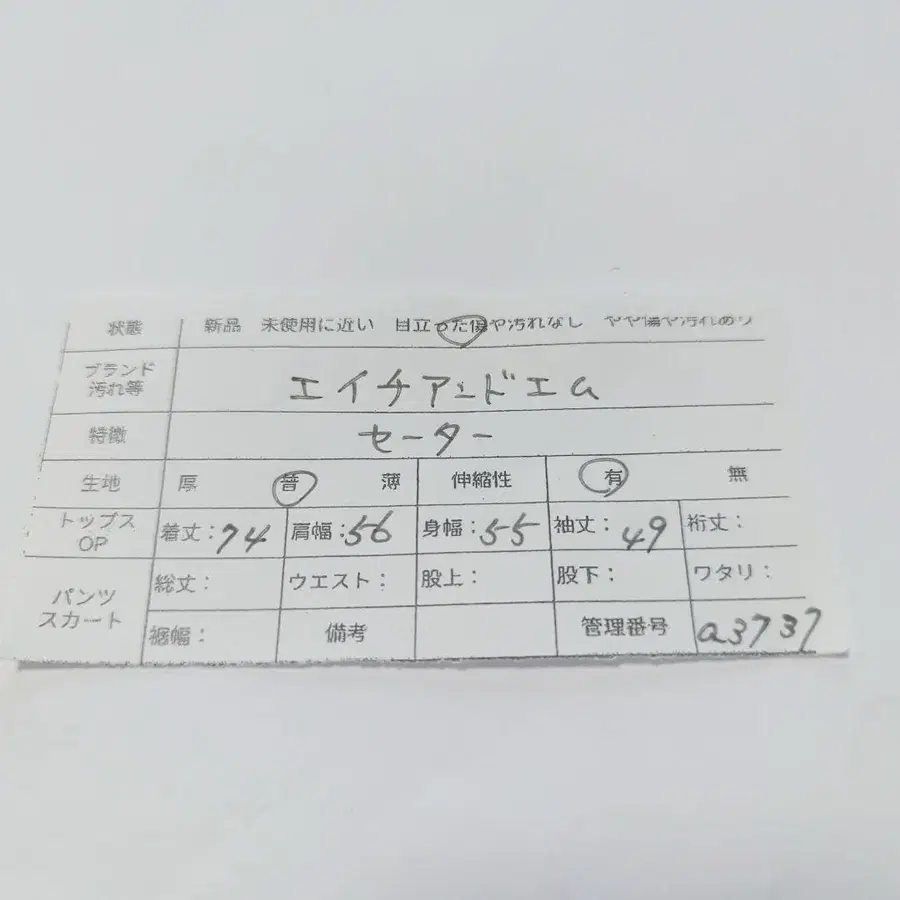 状態 新品 未使用に近い 目立った傷や汚れなし やや傷や汚れあり
ブランド
汚れ等 エイチアンドエム
特徴 セーター
生地 厚 普 薄 伸縮性 有 無
トップス
OP 着丈：74 肩幅：56 身幅：55 袖丈：49 裄丈：
パンツ
スカート 総丈： ウエスト： 股上： 股下： ワタリ：
裾幅： 備考 管理番号 a3737